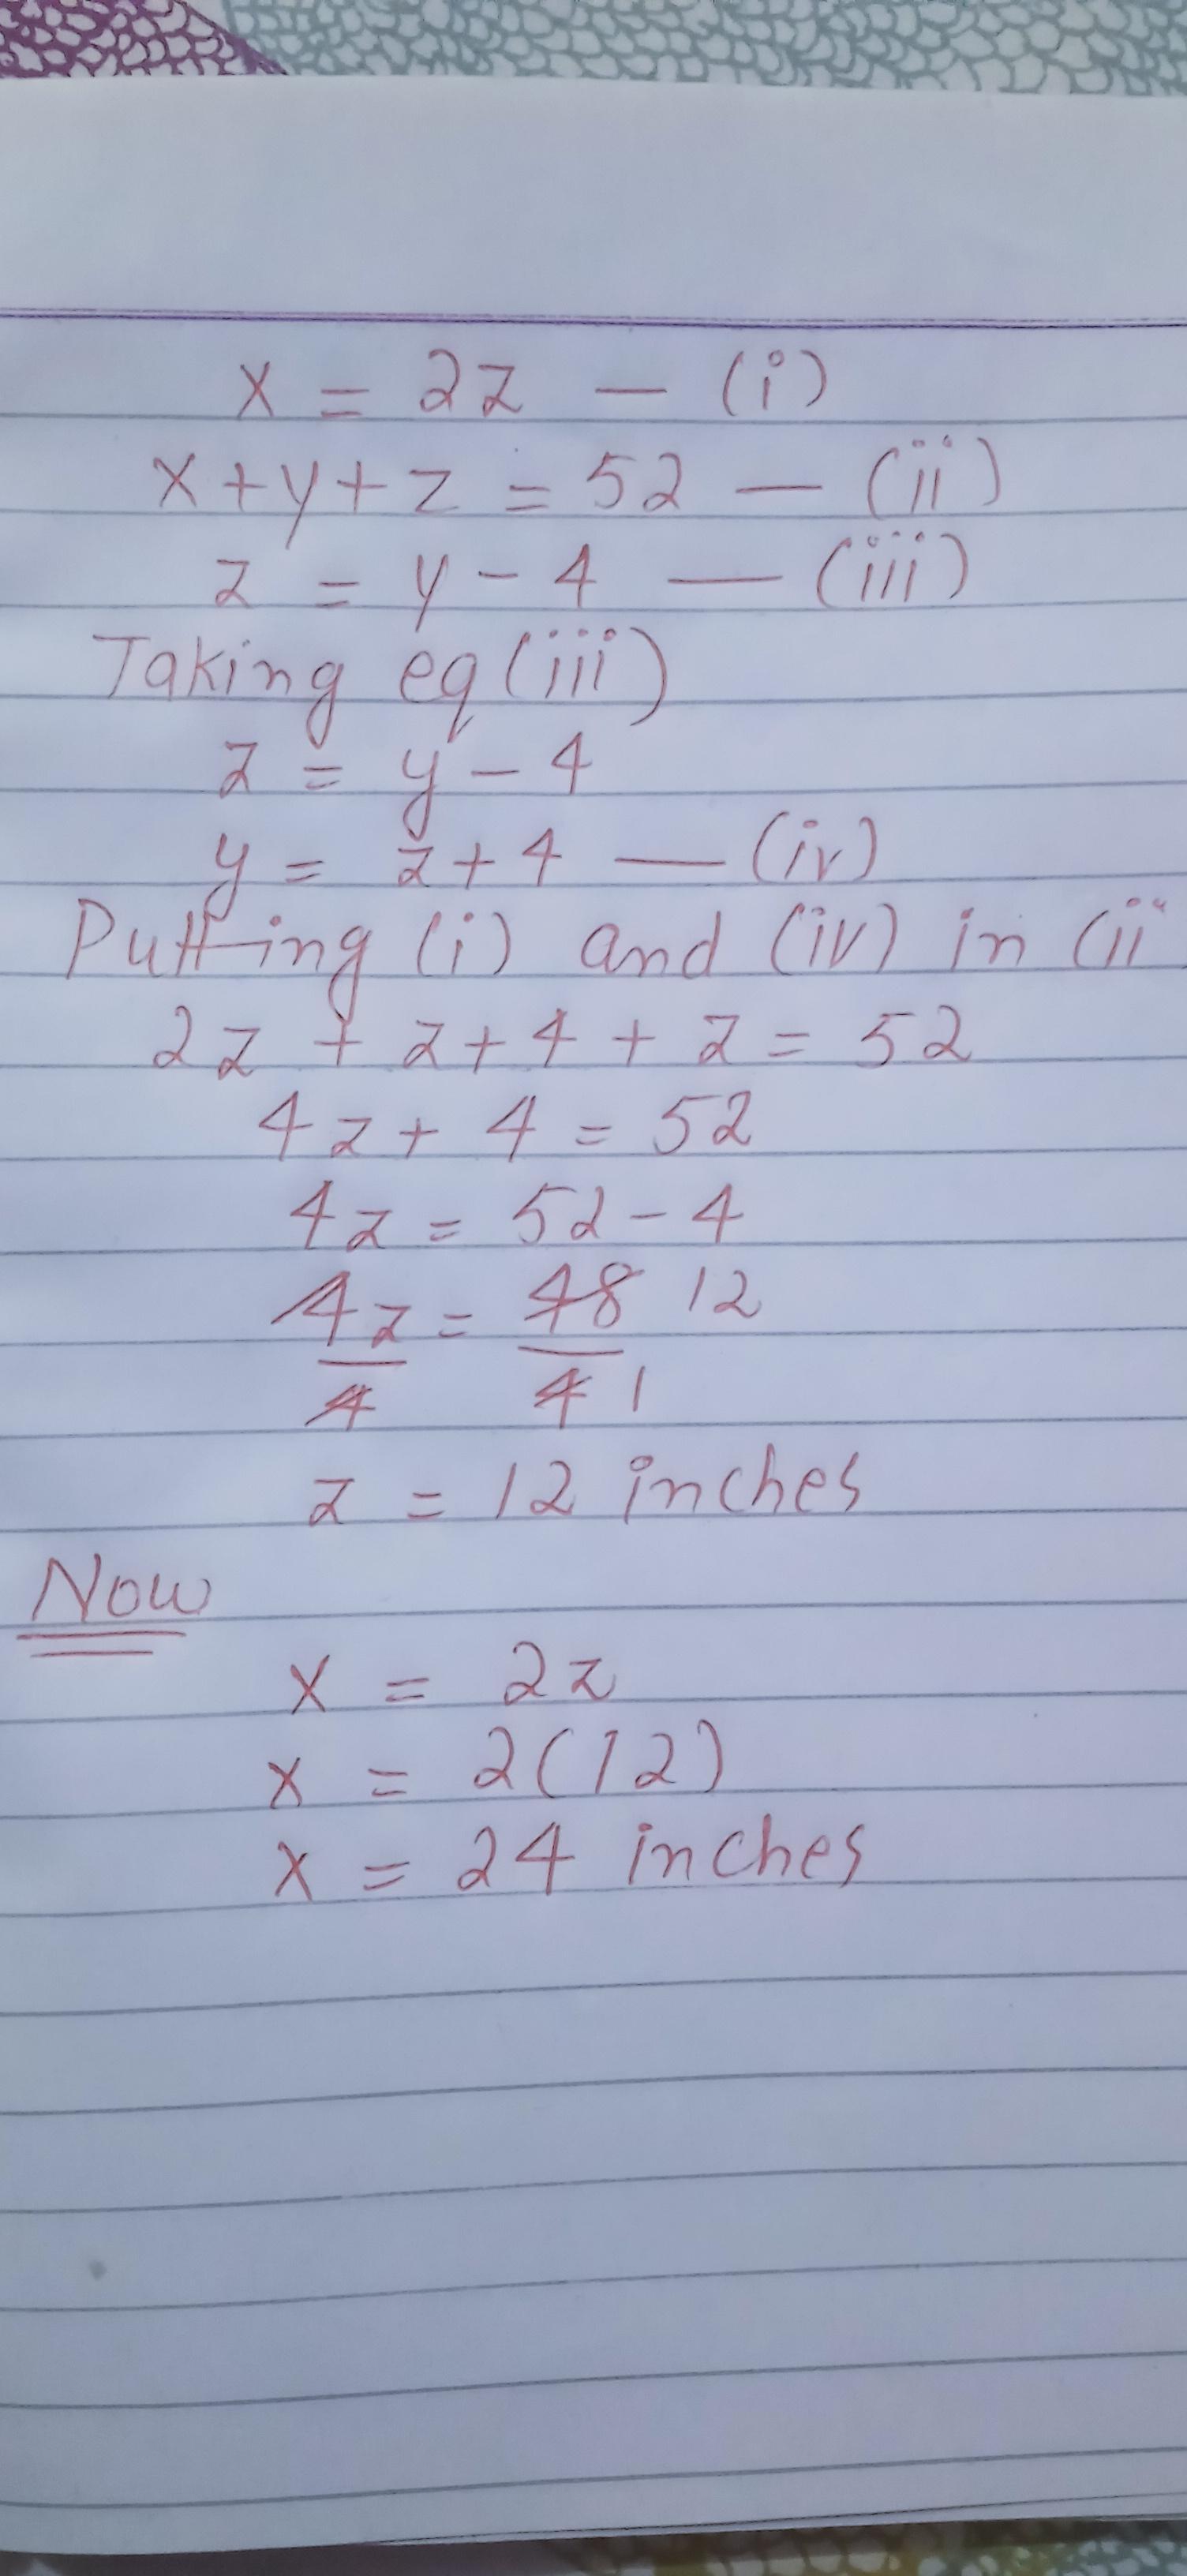 x = 2z — (i)
x+y+z = 52 — (ii)
z = y - 4 — (iii)
Taking eq(iii)
z = y - 4
y = z+4 — (iv)
Putting (i) and (iv) in (ii
2z + z+4 + z = 52
4z + 4 = 52
4z = 52 - 4
4z = 48 12
4 4 1
z = 12 inches
Now
x = 2z
x = 2(12)
x = 24 inches